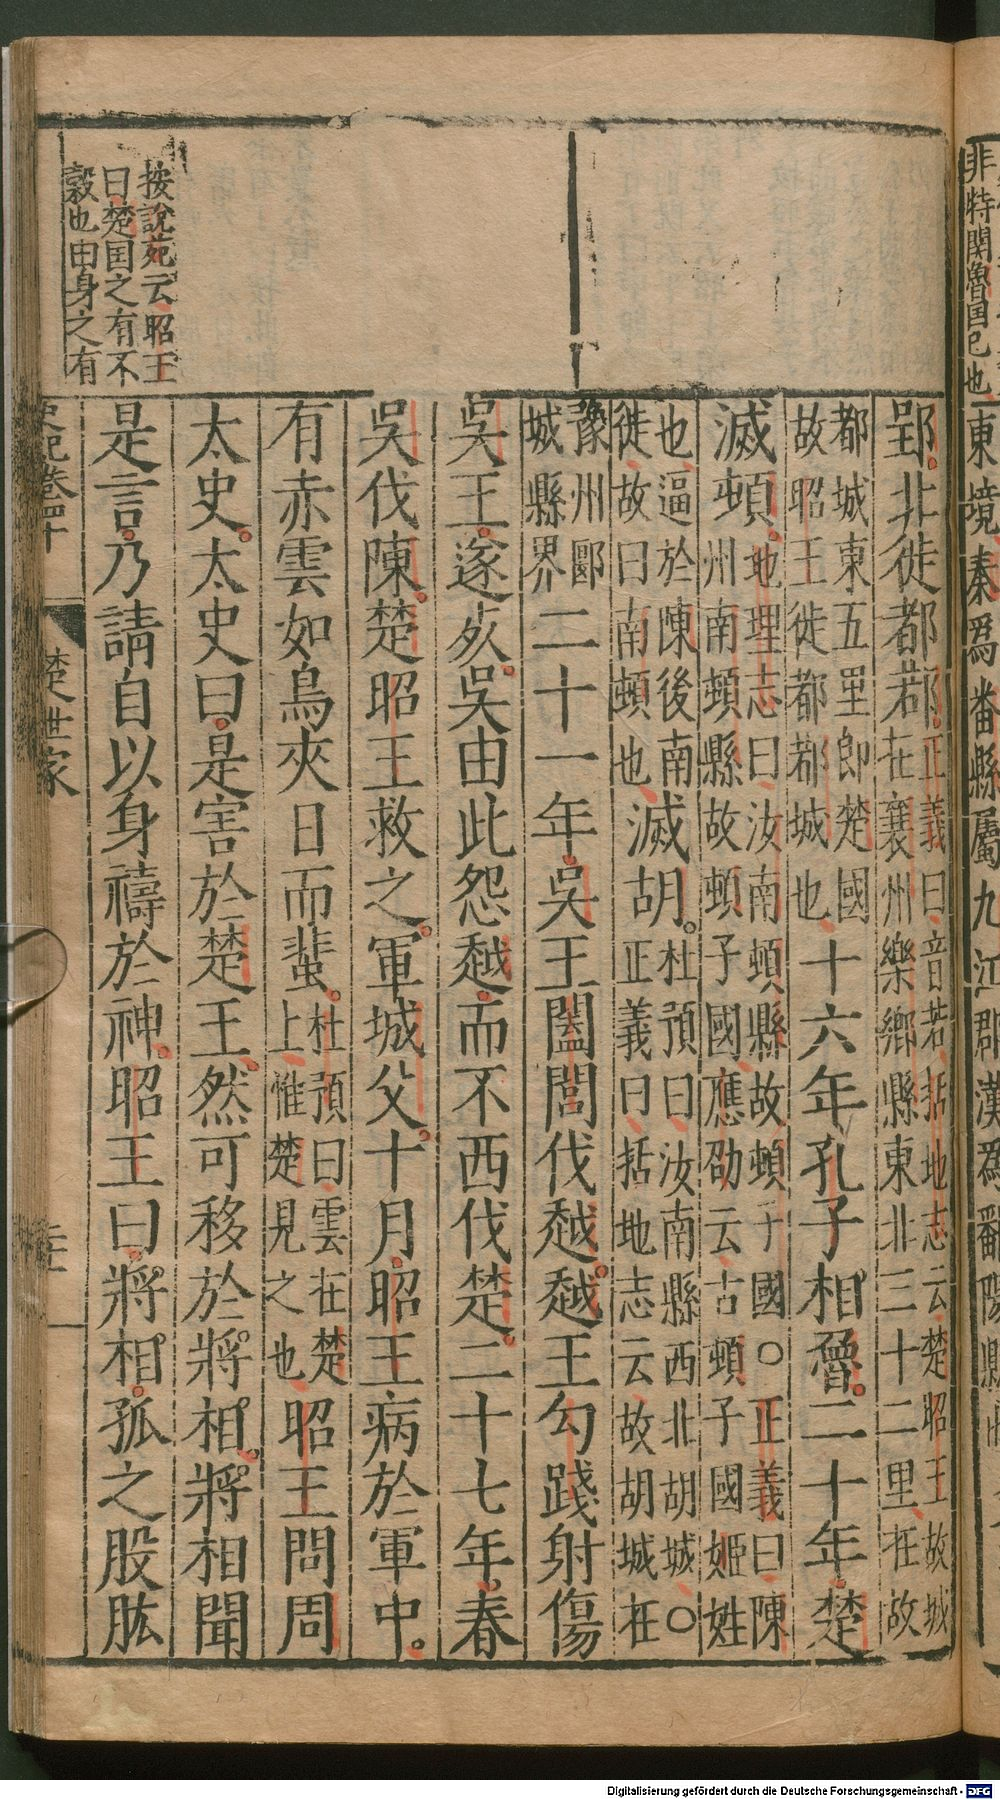 非特閑魯国已也
東境秦爲番縣屬九江郡漢爲鄱陽縣
郢北徙都鄀正義曰音若括地志云楚昭王故城
在襄州樂鄉縣東北三十二里在故
都城東五里即楚國
故昭王徙都鄀城也十六年孔子相魯二十年楚
滅頓地理志曰汝南頓縣故頓子國〇正義曰陳
州南頓縣故頓子國應劭云古頓子國姬姓
也逼於陳後南
徙故曰南頓也滅胡杜預曰汝南縣西北胡城〇
正義曰括地志云故胡城在
豫州郾
城縣界二十一年吳王闔閭伐越越王勾踐射傷
吳王遂死吳由此怨越而不西伐楚二十七年春
吳伐陳楚昭王救之軍城父十月昭王病於軍中
有赤雲如鳥夾日而蜚杜預曰雲在楚
上惟楚見之也昭王問周
太史太史曰是害於楚王然可移於將相將相聞
是言乃請自以身禱於神昭王曰將相孤之股肱
按說苑云昭王
曰楚国之有不
榖也由身之有
史記卷四十
楚世家
Digitalisierung gefördert durch die Deutsche Forschungsgemeinschaft - DFG